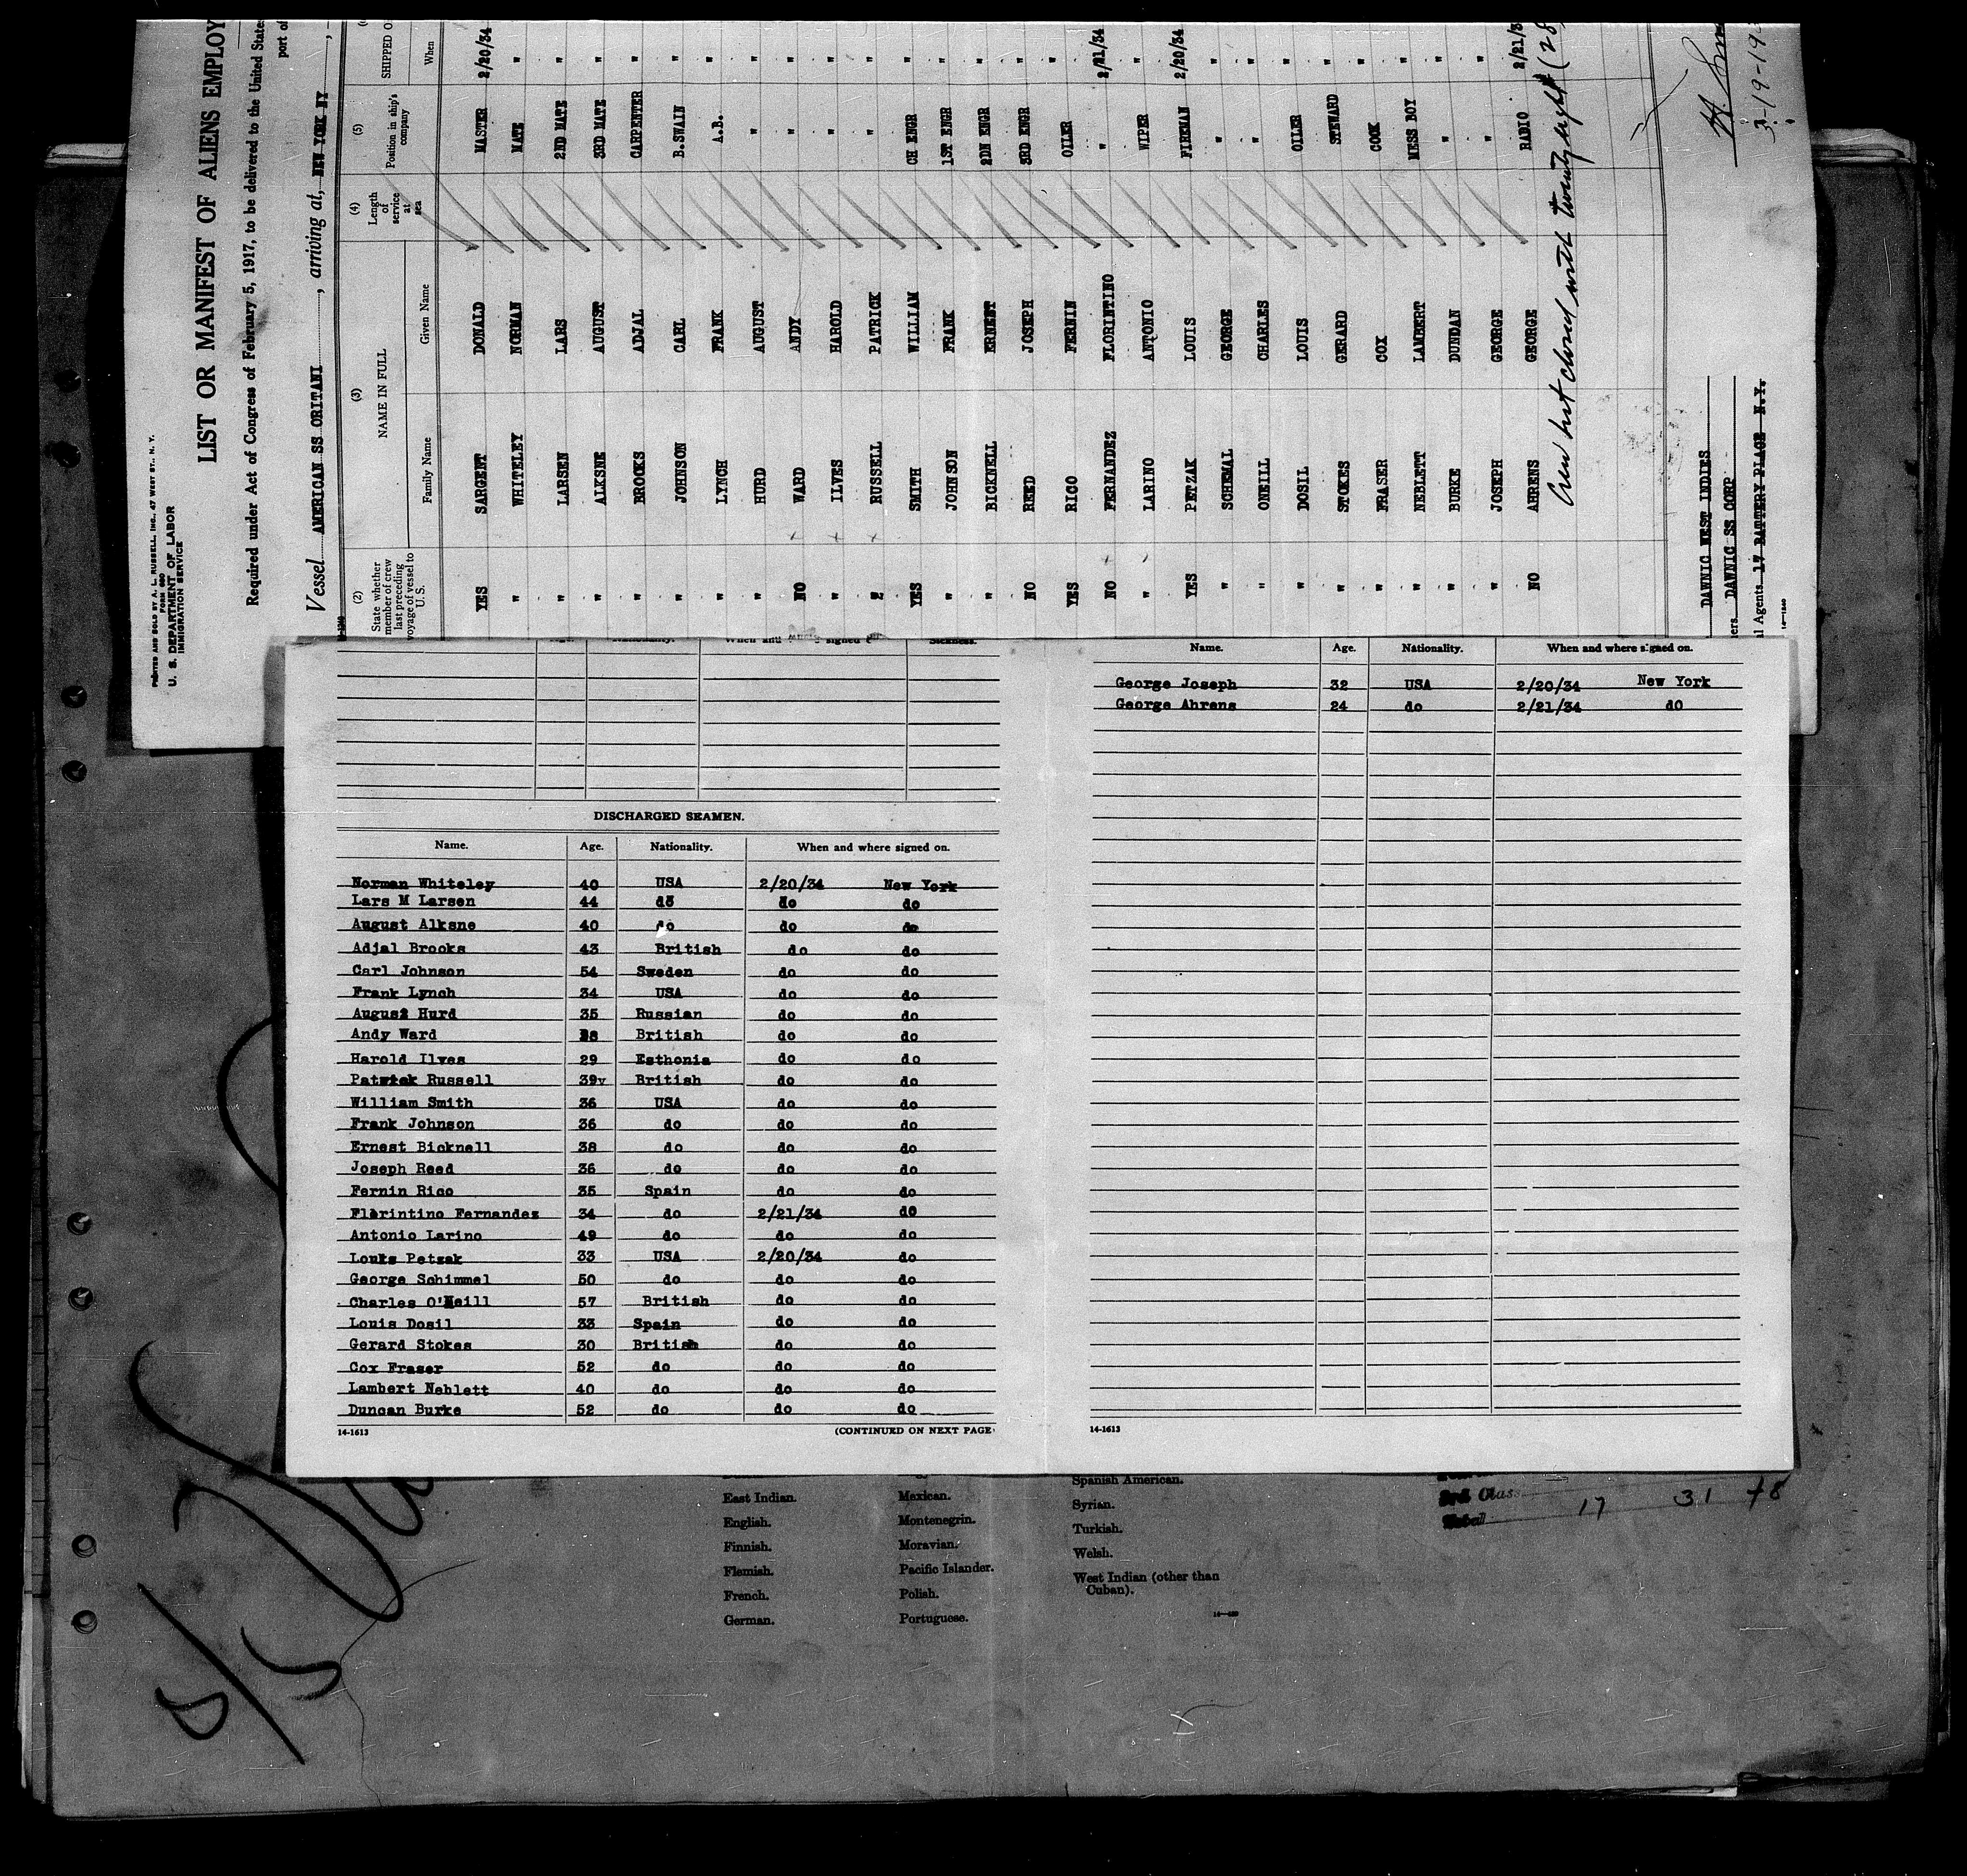 PRINTED AND SOLD BY A. L. RUSSELL, INC., 47 WEST ST., N. Y.
FORM 680
U. S. DEPARTMENT OF LABOR
IMMIGRATION SERVICE
LIST OR MANIFEST OF ALIENS EMPLOY
Required under Act of Congress of February 5, 1917, to be delivered to the United State
port of
Vessel AMERICAN SS ORITANI , arriving at, NEW YORK NY ,
(2) (3) (4) (5)
State whether member of crew last preceding voyage of vessel to U. S. NAME IN FULL Length of service at sea Position in ship's company SHIPPED O
Family Name Given Name When
YES SARGENT DONALD MASTER 2/20/34
" WHITELEY NORMAN MATE "
" LARSEN LARS 2ND MATE "
" ALKSNE AUGUST 3RD MATE "
" BROOKS ADJAL CARPENTER "
" JOHNSON CARL B.SWAIN "
" LYNCH FRANK A.B. "
" HURD AUGUST " "
NO WARD ANDY " "
" ILVES HAROLD " "
" RUSSELL PATRICK " "
YES SMITH WILLIAM CH ENGR "
" JOHNSON FRANK 1ST ENGR "
" BICKNELL ERNEST 2DN ENGR "
NO REED JOSEPH 3RD ENGR "
YES RICO FERNIN OILER "
NO FERNANDEZ FLORINTINO " 2/21/34
" LARINO ANTONIO WIPER "
YES PETZAK LOUIS FIREMAN 2/20/34
" SCHEMAL GEORGE " "
" ONEILL CHARLES " "
" DOSIL LOUIS OILER "
" STOKES GERARD STEWARD "
" FRASER COX COOK "
" NEBLETT LAMBERT MESS BOY "
" BURKE DUNDAN " "
" JOSEPH GEORGE " "
NO AHRENS GEORGE RADIO 2/21/3
Crew list closed with twenty eight (28
DAWNIC WEST INDIES
ers. DAWNIC SS CORP
l Agents 17 BATTERY PLACE N.Y.
14-1240
3-19-193
DISCHARGED SEAMEN.
Name. Age. Nationality. When and where signed on.
Norman Whiteley 40 USA 2/20/34 New York
Lars M Larsen 44 do do do
August Alksne 40 do do do
Adjal Brooks 43 British do do
Carl Johnson 54 Sweden do do
Frank Lynch 34 USA do do
August Hurd 35 Russian do do
Andy Ward British do do
Harold Ilves 29 Esthonia do do
Patrick Russell 39v British do do
William Smith 36 USA do do
Frank Johnson 36 do do do
Ernest Bicknell 38 do do do
Joseph Reed 36 do do do
Fernin Rico 35 Spain do do
Florintino Fernandez 34 do 2/21/34 do
Antonio Larino 49 do do do
Louis Petzak 33 USA 2/20/34 do
George Schimmel 50 do do do
Charles O'Neill 57 British do do
Louis Dosil 33 Spain do do
Gerard Stokes 30 British do do
Cox Fraser 52 do do do
Lambert Neblett 40 do do do
Duncan Burke 52 do do do
14-1613 (CONTINUED ON NEXT PAGE
Name. Age. Nationality. When and where signed on.
George Joseph 32 USA 2/20/34 New York
George Ahrens 24 do 2/21/34 dO
14-1613
East Indian.
English.
Finnish.
Flemish.
French.
German.
Mexican.
Montenegrin.
Moravian.
Pacific Islander.
Polish.
Portuguese.
Spanish American.
Syrian.
Turkish.
Welsh.
West Indian (other than
Cuban).
3rd Class
Total 17 31 48
S/S